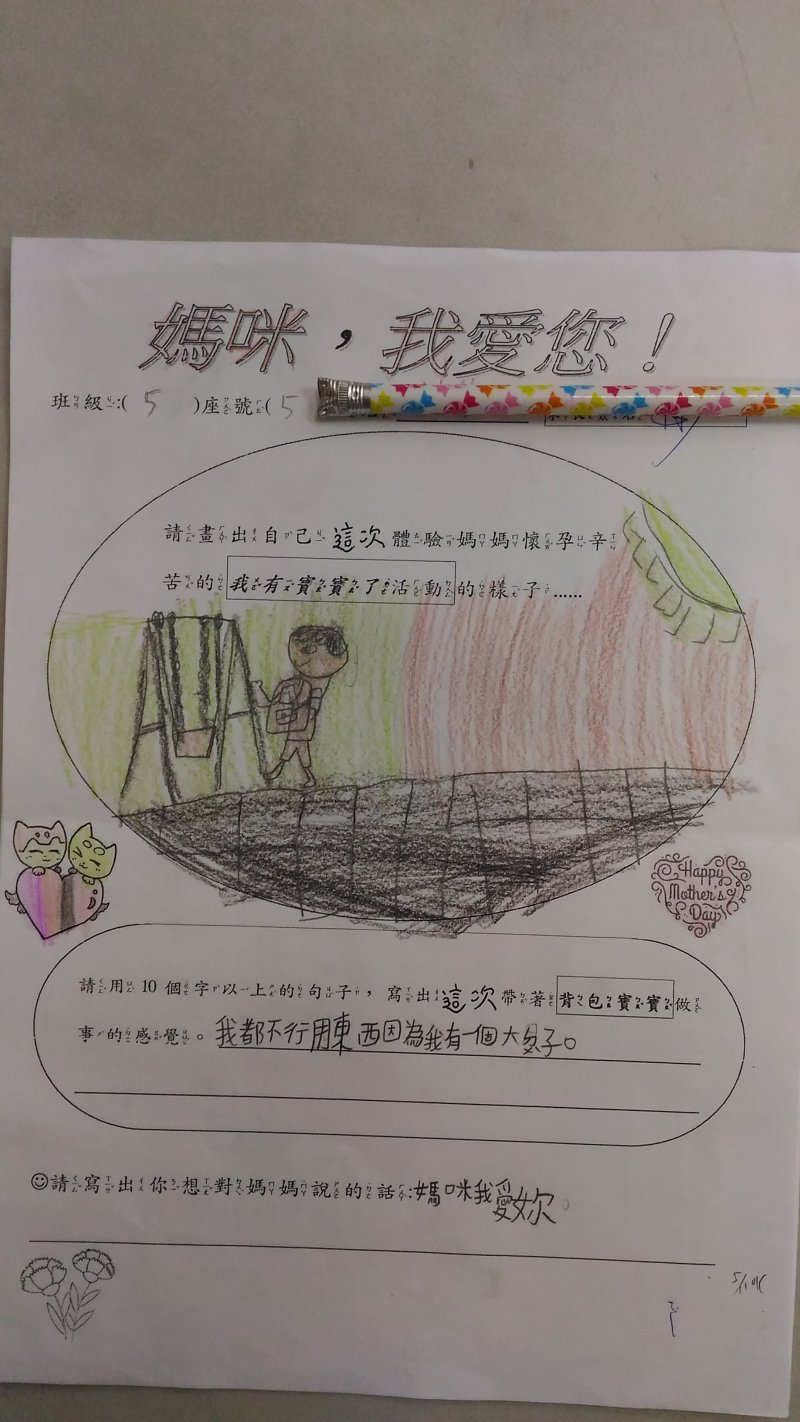 媽咪，我愛您！
班級:( 5 )座號:( 5
請畫出自己這次體驗媽媽懷孕辛
苦的我有寶寶了活動的樣子……
Happy
Mother's
Day
請用 10 個字以上的句子，寫出這次帶著背包寶寶做
事的感覺。我都不行用東西因為我有一個大肚子。
☺請寫出你想對媽媽說的話:媽咪我愛妳。